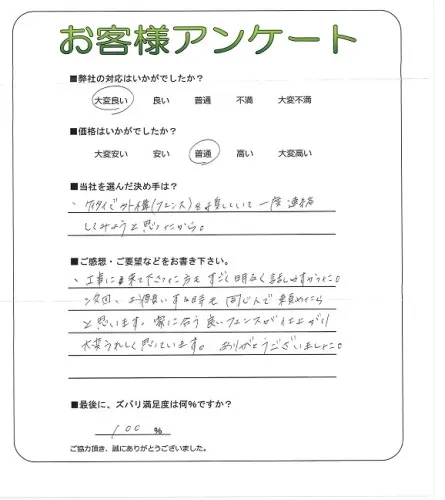 お客様アンケート
■弊社の対応はいかがでしたか？
大変良い 良い 普通 不満 大変不満
■価格はいかがでしたか？
大変安い 安い 普通 高い 大変高い
■当社を選んだ決め手は？
、ケイタイで外構(フェンス)を して 一度 連絡
してみようと思ったから。
■ご感想・ご要望などをお書き下さい。
、工事に来て下さった方も すごく明るく話しやすかった。
次回、お願いする時も 同じ人で 頼めたら
と思います。家に合う良いフェンスが仕上がり
大変うれしく思っています。ありがとうございました。
■最後に、ズバリ満足度は何%ですか？
100 %
ご協力頂き、誠にありがとうございました。